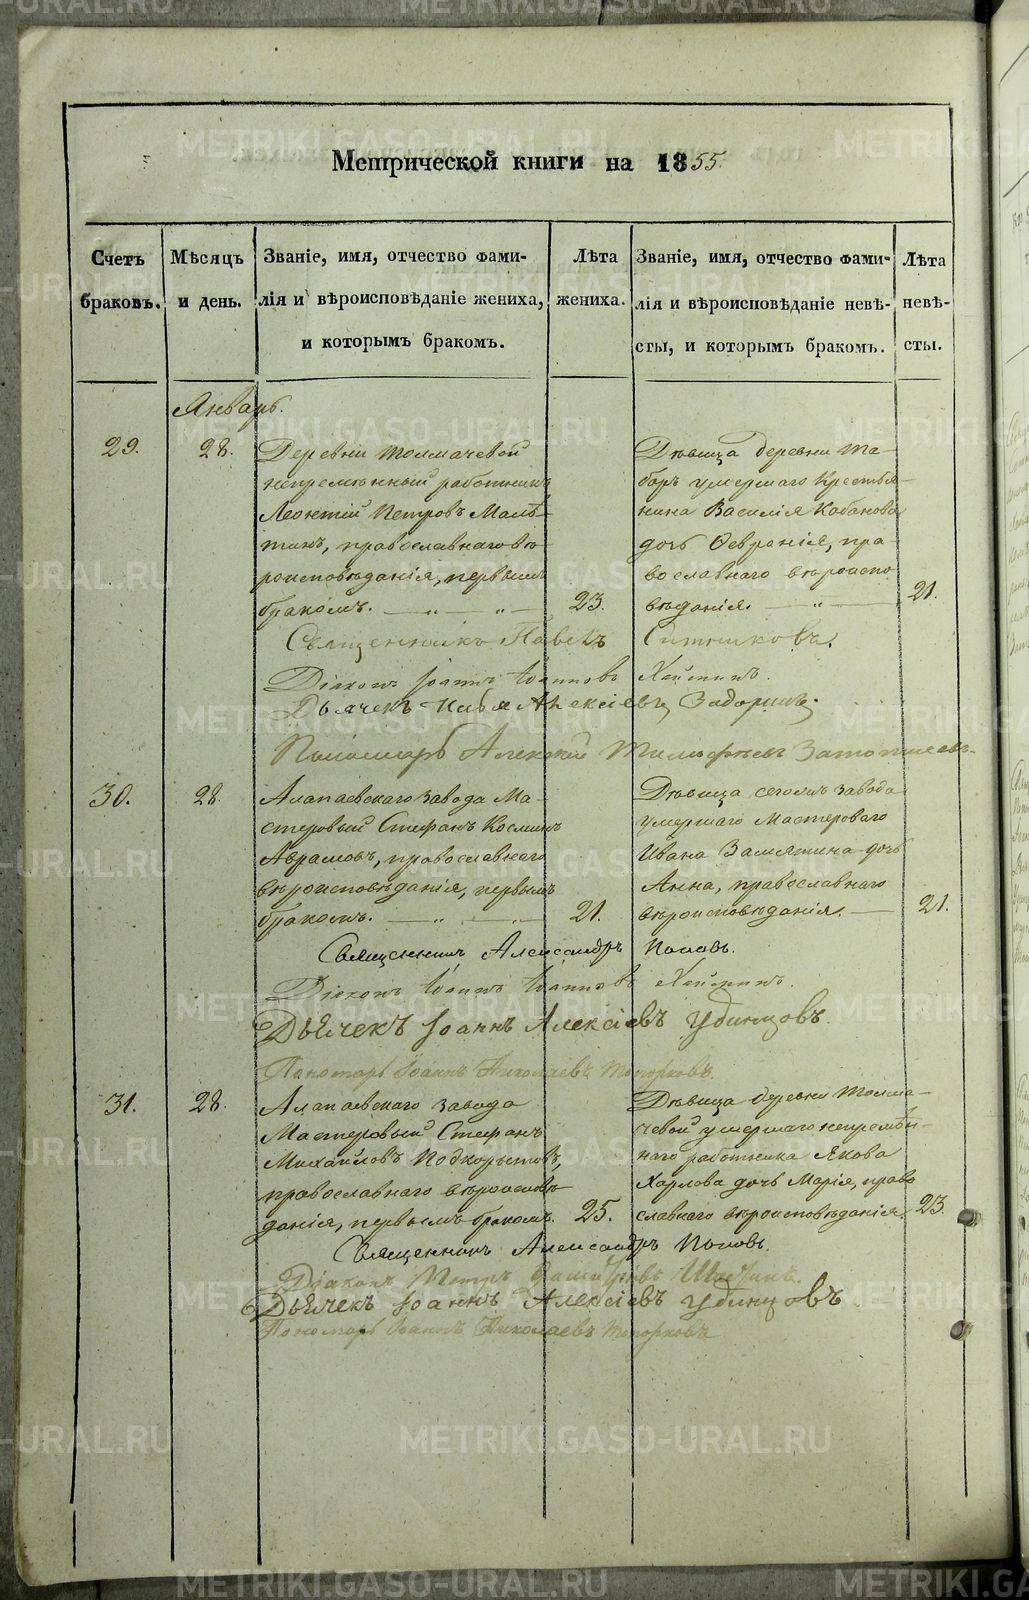 Метрической книги на 1855.
Счетъ браковъ.
Мѣсяцъ и день.
Званіе, имя, отчество фами-
лія и вѣроисповѣданіе жениха,
и которымъ бракомъ.
Лѣта жениха.
Званіе, имя, отчество фами-
лія и вѣроисповѣданіе невѣ-
сты, и которымъ бракомъ.
Лѣта невѣ-
сты.
Январь.
29.
28.
Деревни Толмачевой
непремѣнный работникъ
Леонтій Петровъ Маль-
тинъ, православнаго вѣ-
роисповѣданія, первымъ
бракомъ. — „ — „ —
23.
Дѣвица деревни Та-
боръ умершаго крестья-
нина Василія Кабакова
дочь Февронія, пра-
вославнаго вѣроиспо
вѣданія. — „ —
21.
Священникъ Павелъ Ситниковъ.
Діаконъ Іоаннъ Іоанновъ
Дьячекъ Илья Алексіевъ Задоринъ.
Пономарь Алексій Тимофѣевъ
30.
28.
Алапаевскаго завода Ма-
стеровый Стефанъ Косминъ
Аврамовъ, православнаго
вѣроисповѣданія, первымъ
бракомъ. — „ — „ —
21.
Дѣвица сегожъ завода
умершаго Мастероваго
Ивана Замятина дочь
Анна, православнаго
вѣроисповѣданія. —
21.
Священникъ Александръ Поповъ.
Діаконъ Іоаннъ Іоанновъ
Дьячекъ Іоаннъ Алексіевъ Удинцовъ
Пономарь Іоаннъ Николаевъ Топорковъ.
31.
28.
Алапаевскаго завода
Мастеровый Стефанъ
Михайловъ Подкорытовъ,
православнаго вѣроисповѣ-
данія, первымъ бракомъ.
25.
Дѣвица деревни Толма-
чевой умершаго непремѣн-
наго работника Якова
Харлова дочь Марія, право
славнаго вѣроисповѣданія.
23.
Священникъ Александръ Поповъ.
Діаконъ Петръ
Дьячекъ Іоаннъ Алексіевъ Удинцовъ
Пономарь Іоаннъ Николаевъ Топорковъ
METRIKI.GASO-URAL.RU